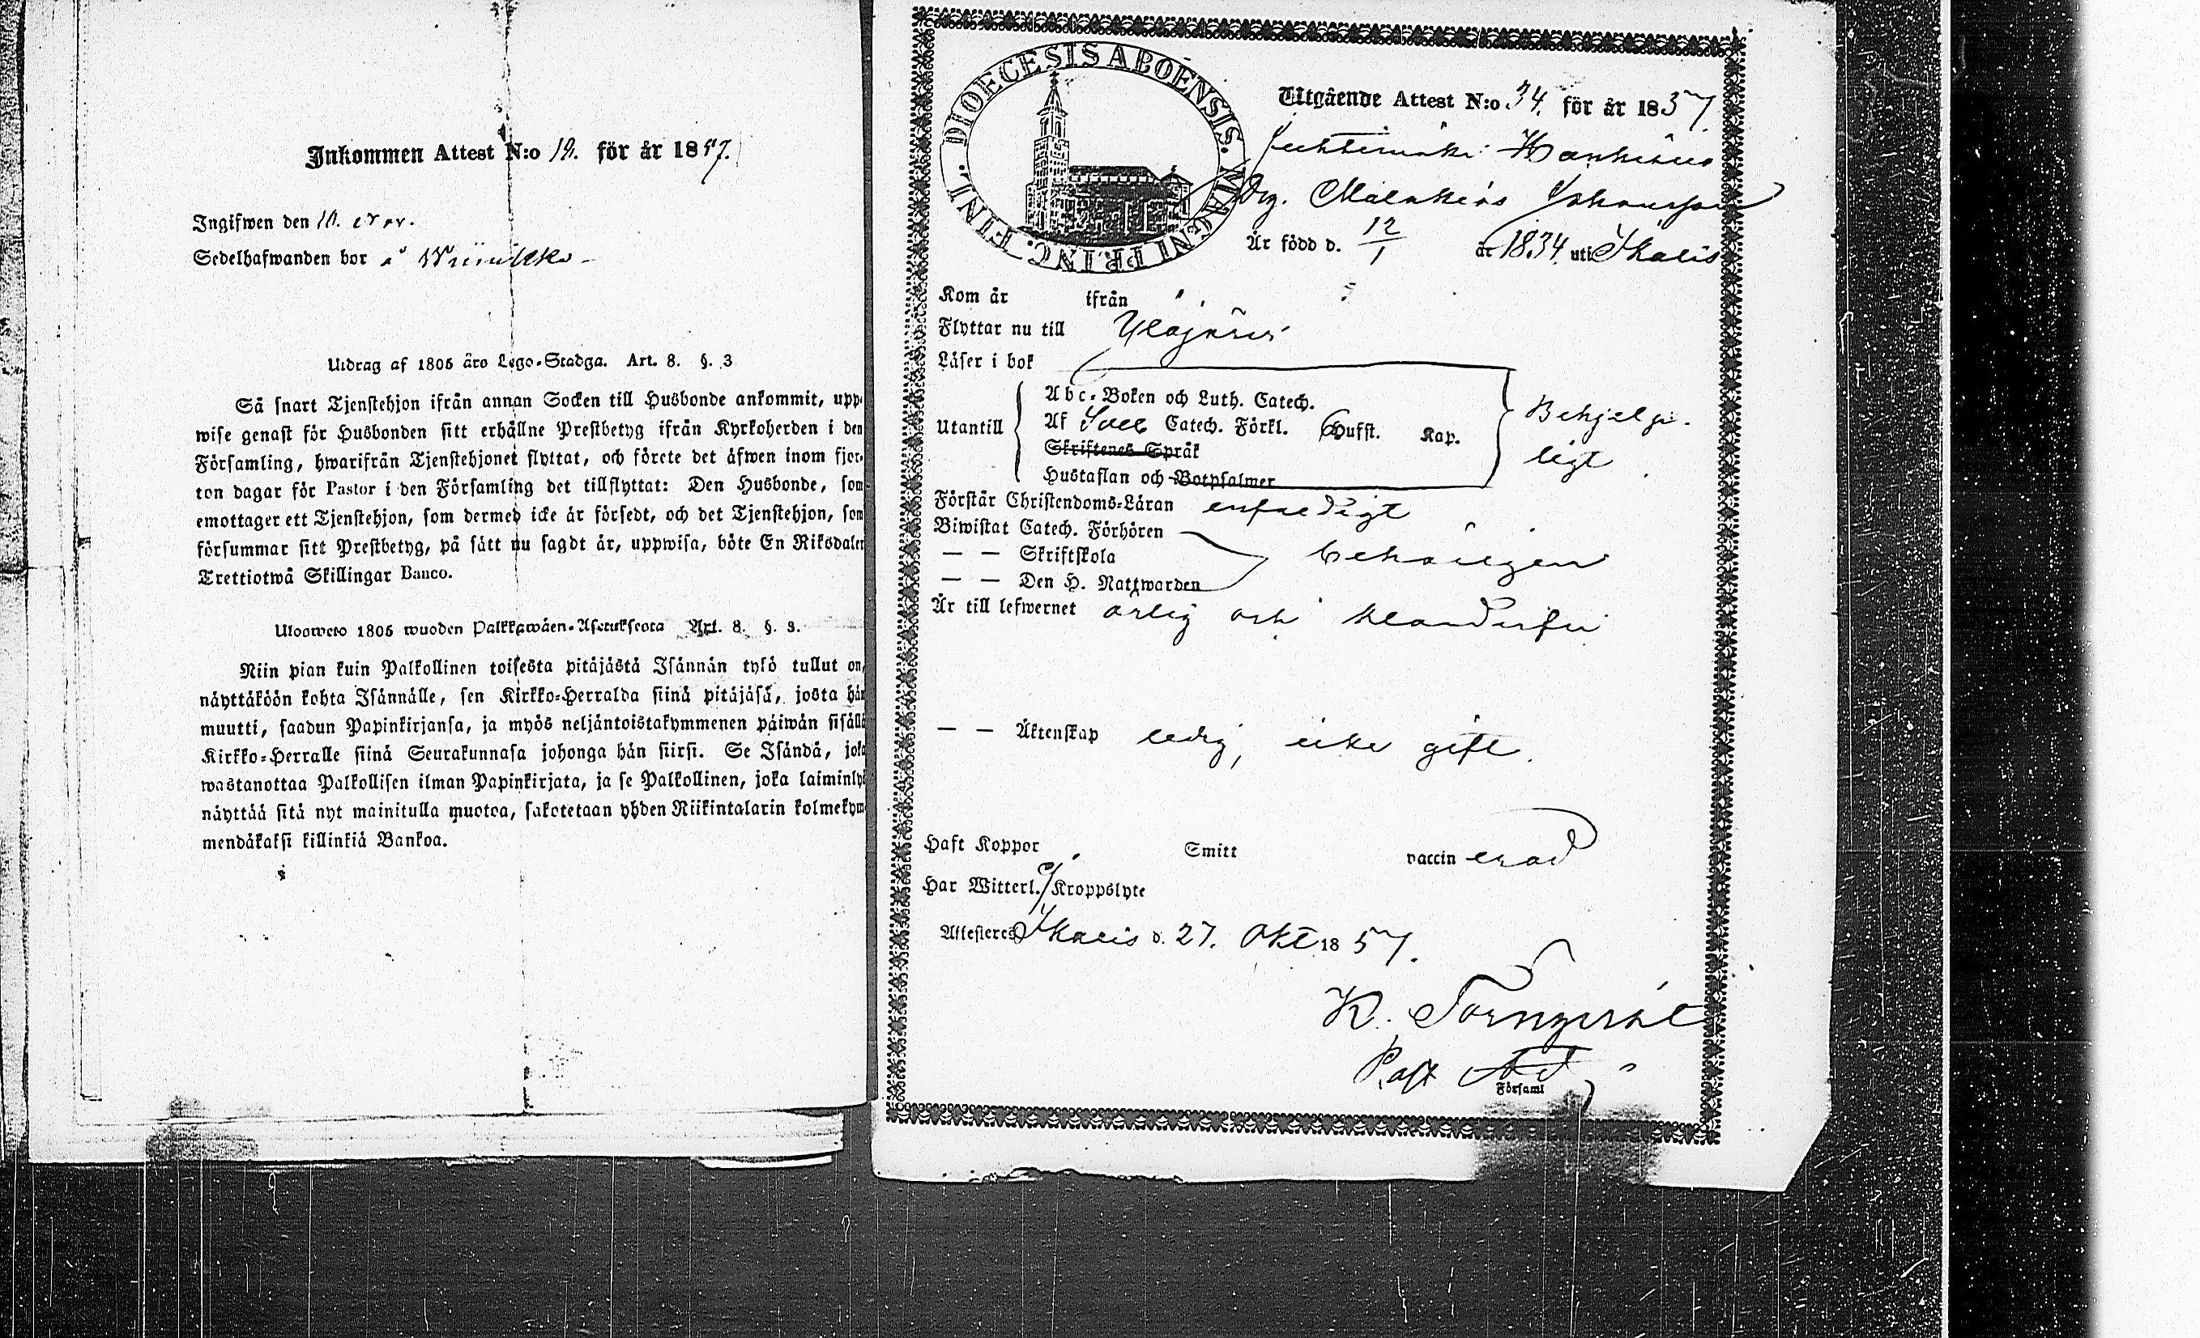 Inkommen Attest N:o 19. för år 1857.
Ingifwen den 10. Nov.
Sedelhafwanden bor å
Utdrag af 1805 års Lego-Stadga. Art. 8. §. 3
Så snart Tjenstehjon ifrån annan Socken till Husbonde ankommit, upp-
wise genast för Husbonden sitt erhållne Prestbetyg ifrån Kyrkoherden i den
Församling, hwarifrån Tjenstehjonet flyttat, och förete det äfwen inom fjor-
ton dagar för Pastor i den Församling det tillflyttat: Den Husbonde, som
emottager ett Tjenstehjon, som dermed icke är försedt, och det Tjenstehjon, som
försummar sitt Prestbetyg, på sätt nu sagdt är, uppwisa, böte En Riksdaler
Trettiotwå Skillingar Banco.
Ulosweto 1805 wuoden Palkkawäen-Asetuksesta Art. 8. §. 3.
Niin pian kuin Palkollinen toisesta pitäjästä Isännän tykö tullut on,
näyttäköön kohta Isännälle, sen Kirkko-Herralda siinä pitäjäsä, josta hän
muutti, saadun Papinkirjansa, ja myös neljäntoistakymmenen päiwän sisällä
Kirkko-Herralle siinä Seurakunnasa johonga hän siirsi. Se Isändä, joka
wastanottaa Palkollisen ilman Papinkirjata, ja se Palkollinen, joka laiminlyö
näyttää sitä nyt mainitulla muotoa, sakotetaan yhden Riikintalarin kolmekym-
mendäkaksi killinkiä Bankoa.
DIOECESIS ABOENSIS. MAGNI PRINC. FINL.
Utgående Attest N:o 34. för år 1857
Drg. Johansson
Är född d. 12/1 år 1834 uti Ikalis
Kom år ifrån
Flyttar nu till Ylöjärvi
Läser i bok
Utantill
Abc-Boken och Luth. Catech.
Af Sveb Catech. Förkl. 6 Hufst. Kap.
Skriftenes Språk
Hustaflan och Botpsalmer
Behjelp-
ligt
Förstår Christendoms-Läran enfaldigt
Biwistat Catech. Förhören
— — Skriftskola
— — Den H. Nattwarden
behörigen
Är till lefwernet ärlig och klanderfri
— — Äktenskap ledig, icke gift.
Haft Koppor Smitt vaccin erad
Har Witterl. Kroppslyte
Attesteres Ikalis d. 27. Okt 1857.
K.
Past
Församl